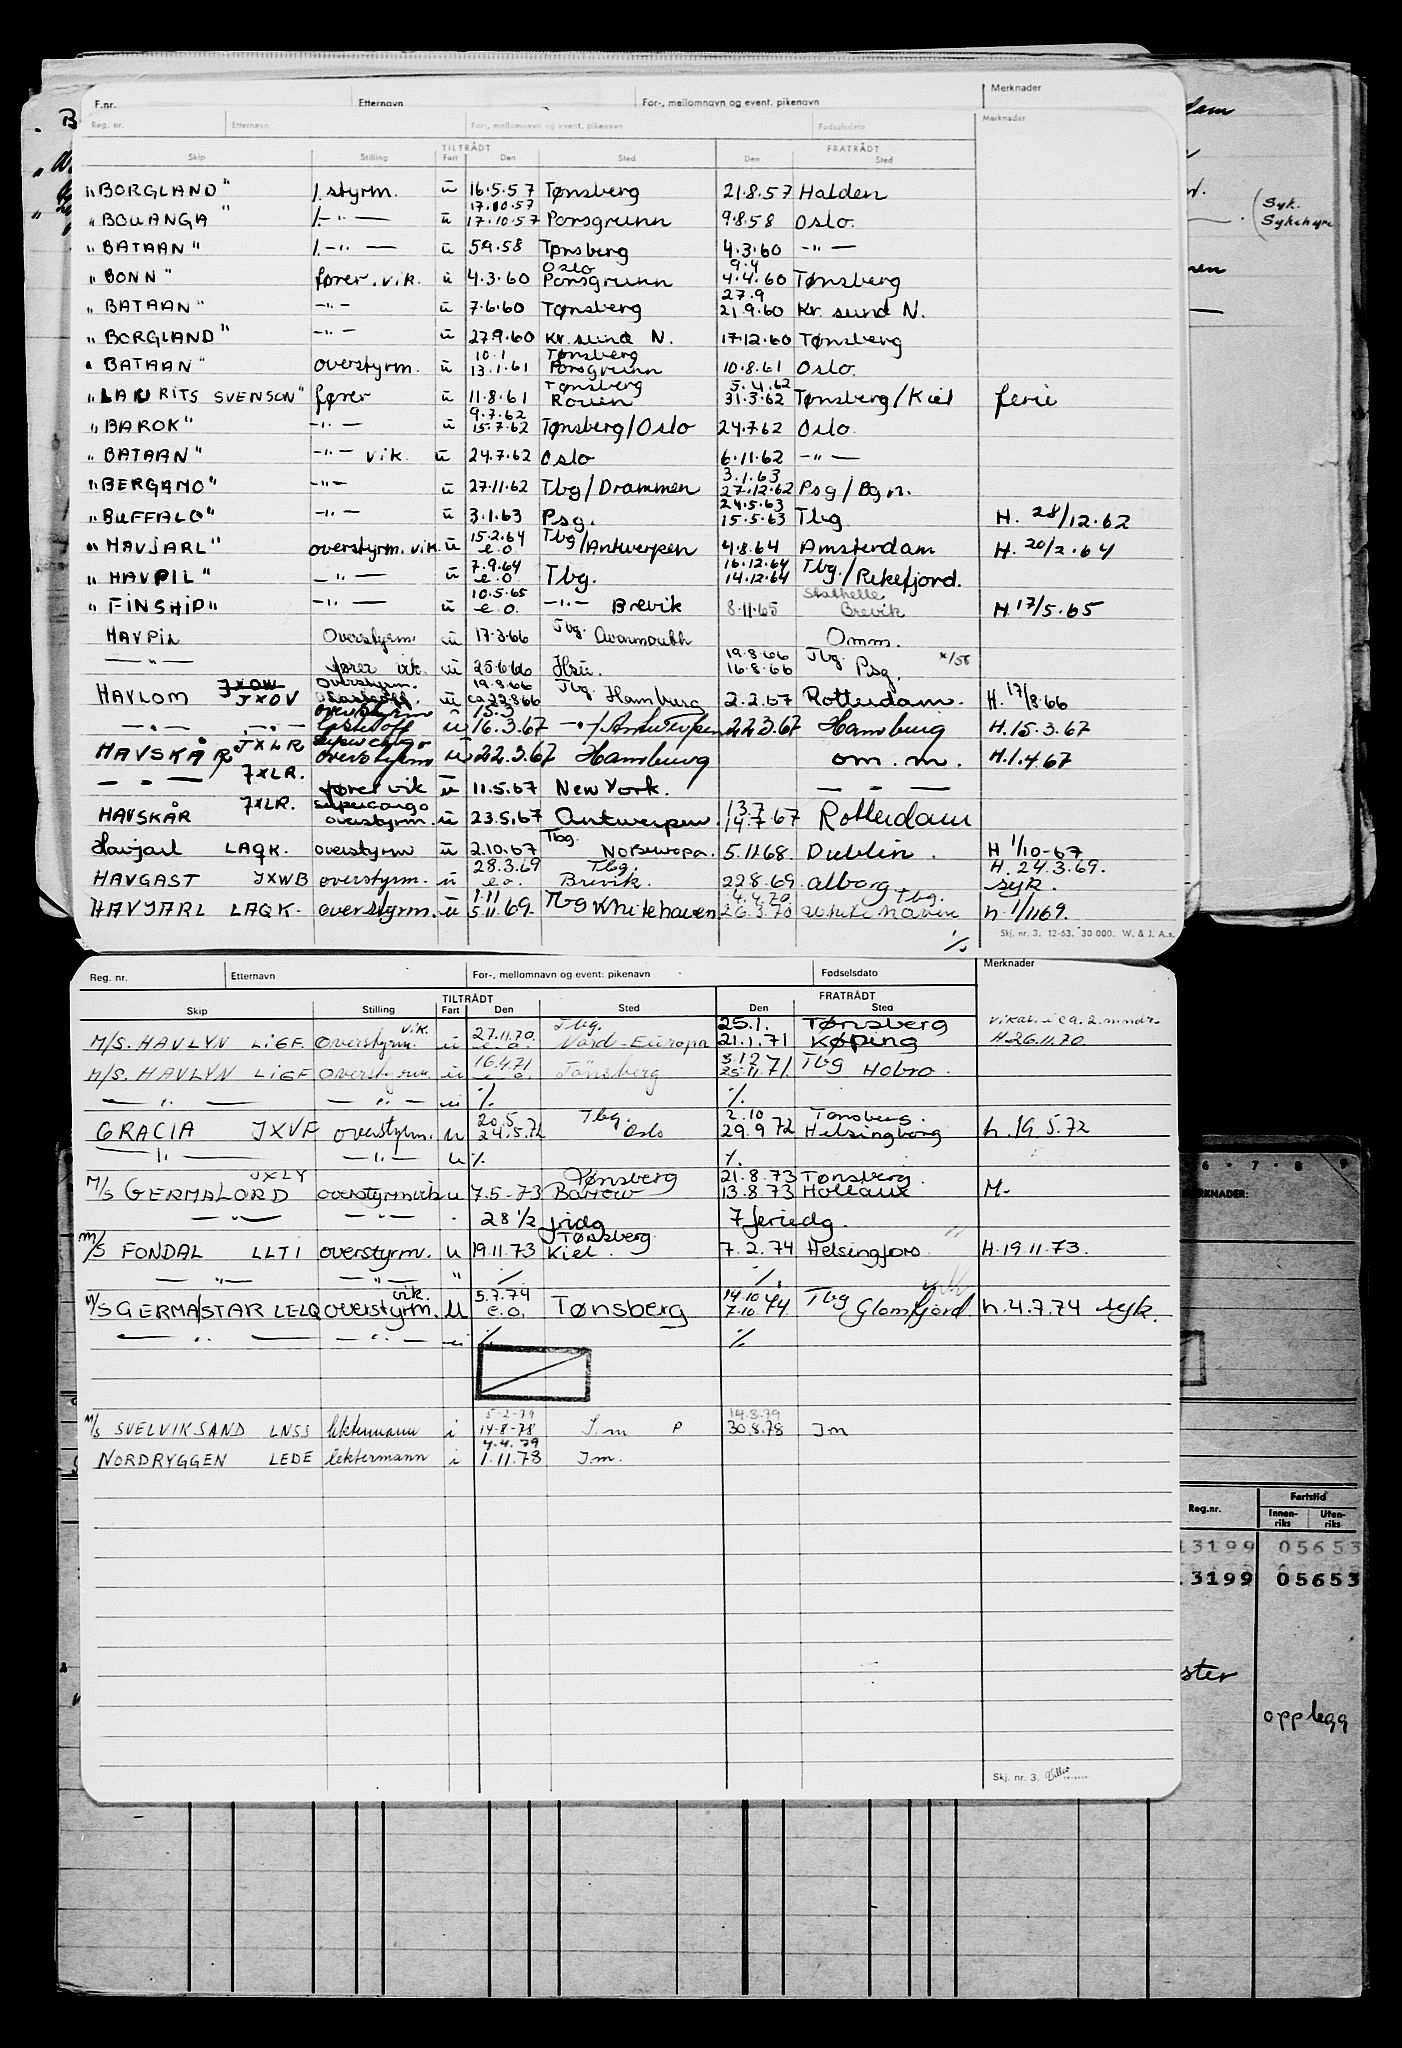 F.nr. Etternavn For-, mellomnavn og event. pikenavn Merknader
Reg. nr. Etternavn For-, mellomnavn og event. pikenavn Fødselsdato Merknader
TILTRÅDT FRATRÅDT
Skip Stilling Fart Den Sted Den Sted
"BORGLAND" 1. styrm. u 16.5.57 Tønsberg 21.8.57 Halden
17.10.57
"BOUANGA" 1. -"- u 17.10.57 Porsgrunn 9.8.58 Oslo.
"BATAAN" 1. -"- u 5.9.58 Tønsberg 4.3.60 -"-
Oslo 9.4
"BONN" fører. vik. u 4.3.60 Porsgrunn 4.4.60 Tønsberg
27.9
"BATAAN" -"- u 7.6.60 Tønsberg 21.9.60 Kr. sund N.
"BORGLAND" -"- u 27.9.60 Kr. sund N. 17.12.60 Tønsberg
10.1 Tønsberg
"BATAAN" overstyrm. u 13.1.61 Porsgrunn 10.8.61 Oslo.
Tønsberg 5.4.62
"LAURITS SVENSON" fører u 11.8.61 Rouen 31.3.62 Tønsberg/Kiel ferie
9.7.62
"BAROK" -"- u 15.7.62 Tønsberg/Oslo 24.7.62 Oslo.
"BATAAN" -"- vik. u 24.7.62 Oslo 6.11.62 -"-
3.1.63
"BERGAMO" -"- u 27.11.62 Tbg/Drammen 27.12.62 Psg/Bgn.
24.5.63
"BUFFALO" -"- u 3.1.63 Psg. 15.5.63 Tbg H. 28/12.62
15.2.64
"HAVJARL" overstyrm. vik. u e.o. Tbg/Antwerpen 4.8.64 Amsterdam H. 20/2.64
7.9.64 16.12.64
"HAVPIL" -"- u e.o. Tbg. 14.12.64 Tbg./Rekefjord.
10.5.65 Stathelle
"FINSHIP" -"- u e.o. -"- Brevik 8.11.65 Brevik H. 17/5.65
HAVPIL Overstyrm. u 17.3.66 Tbg. Avonmouth Omm.
-"- fører vik. u 25.6.66 Hsu. 19.8.66 16.8.66 Tbg. Psg. x/58
JXOW Overstyrm. 19.8.66 Tbg.
HAVLOM JXOV u ca 22.8.66 Hamburg 2.2.67 Rotterdam. H. 17/8.66
overstyrm 15.3
-"- -"- u 16.3.67 -"-/Antwerpen 22.3.67 Hamburg H.15.3.67
HAVSKÅR JXLR supercargo overstyrm u 22.3.67 Hamburg om. m. H.1.4.67
-"- JXLR. fører vik u 11.5.67 New York. -"-
HAVSKÅR JXLR. supercargo overstyrm. u 23.5.67 Antwerpen. 13.7 14.7.67 Rotterdam
Havjarl LAQK. overstyrm u 2.10.67 Tbg. Nordeuropa. 5.11.68. Dublin. H 1/10-67
28.3.69 Tbg. H. 24.3.69.
HAVGAST JXWB overstyrm. u e.o. Brevik. 22.8.69 Alborg syk.
1.11 4.4.70 Tbg.
HAVJARL LAQK. overstyrm. u 5.11.69. Tbg Whitehaven 26.3.70 Whitehaven h. 1/11 69.
Skj. nr. 3. 12-63. 30 000. W. & J. A.s.
Reg. nr. Etternavn For-, mellomnavn og event: pikenavn Fødselsdato Merknader
TILTRÅDT FRATRÅDT
Skip Stilling Fart Den Sted Den Sted
vik. 27.11.70. Tbg. 25.1. Tønsberg Vikar. i ca. 2. mndr.
M/S. HAVLYN LIGF Overstyrm. u e.o. Nord-Europa 21.1.71 Køping H.26.11.70.
16.4.71 3.12
M/S. HAVLYN LIGF Overstyrm. u e.o. Tønsberg 25.11.71. Tbg Hobro.
-"- -"- u % %
20.5 Tbg. 2.10 Tønsberg.
GRACIA JXVF overstyrm. u 24.5.72 Oslo 29.9.72 Helsingborg h. 19.5.72
-"- -"- u % %
JXLY Tønsberg 21.8.73 Tønsberg
M/S GERMALORD overstyrm vik u 7.5-73 Barrow 13.8.73 M-
-"- -"- 28 1/2 fridg 7 feriedg.
Tønsberg
M/S FONDAL LLTI overstyrm. u 19.11.73 Kiel. 7.2.74 Helsingfors H.19.11.73.
-"- -"- " % %
vik. 5.7.74 14.10
M/S GERMASTAR LELQ overstyrm. u e.o. Tønsberg 7.10.74 Tbg Glomfjord h. 4.7.74 syk.
-"- -"- u % %
5-2-79 14.3.79
M/S SVELVIKSAND LNSS lektermann i 14-8-78 I.m P 30.8.78 Im
4.4.79
NORDRYGGEN LEDE lektermann i 1.11.78 Im.
Skj. nr. 3.
Syk.
Sykehyre
6 - 7 - 8 - 9
Reg.nr. Fartstid
Innenriks Utenriks
13199 05653
.3199 05653
opplegg